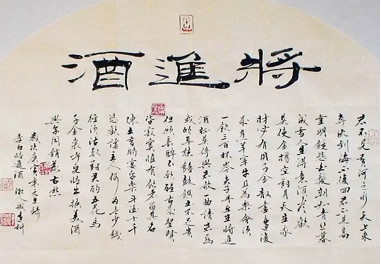 將進酒
君不見黃河之水天上來
奔流到海不復回君不見高
堂明鏡悲白髮朝如青絲暮
成雪人生得意須盡歡
莫使金樽空對月天生我
材必有用千金散盡還復
來烹羊宰牛且為樂會須
一飲三百杯岑夫子丹丘生將進
酒杯莫停與君歌一曲請君為
我傾耳聽鐘鼓饌玉不足貴
但願長醉不願醒古來聖賢
皆寂寞惟有飲者留其名
陳王昔時宴平樂斗酒十千
恣歡謔主人何為言少錢
徑須沽取對君酌五花馬
千金裘呼兒將出換美酒
與爾同銷萬古愁
李白將進酒